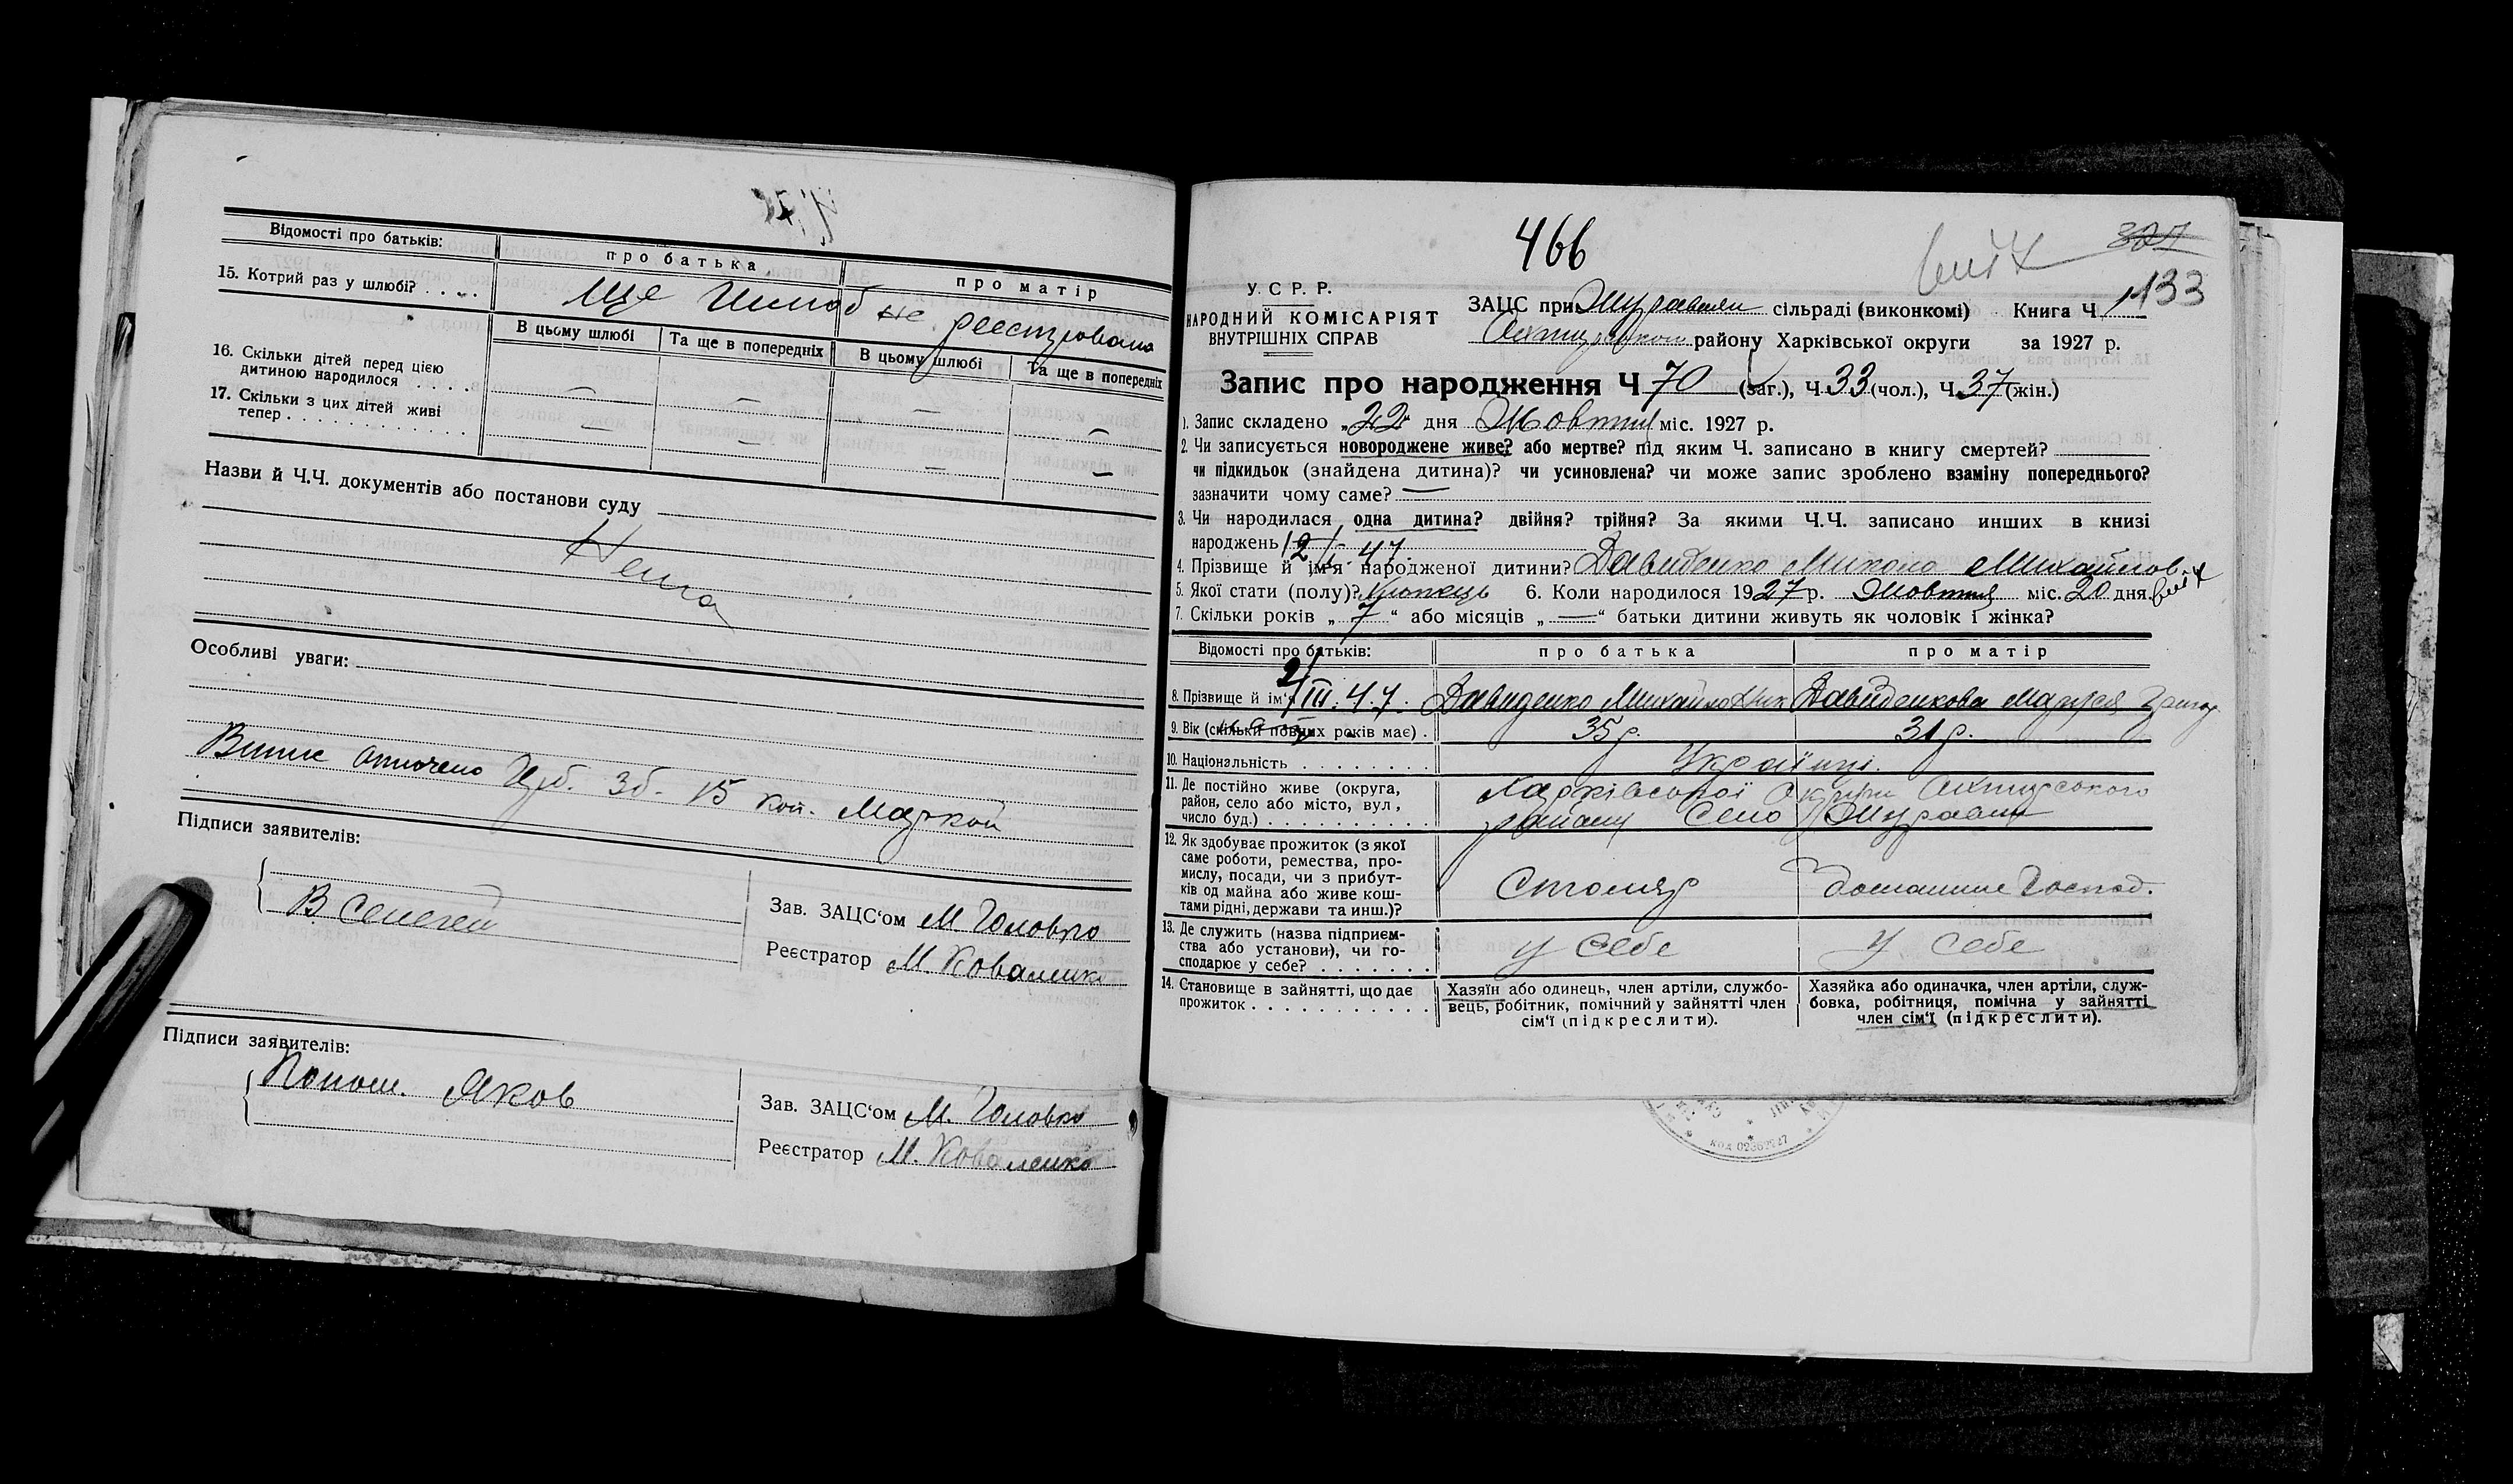 Відомості про батьків:
про батька
про матір
15. Котрий раз у шлюбі? . . . .
Ще шлюб не реєстровано
В цьому шлюбі
Та ще в попередніх
В цьому шлюбі
Та ще в попередніх
16. Скільки дітей перед цією
дитиною народилося . . . .
— — — —
17. Скільки з цих дітей живі
тепер . . . . . . . . . . . .
— — — —
Назви й Ч.Ч. документів або постанови суду
Нема
Особливі уваги:
15 коп. Маркой
Підписи заявителів:
Зав. ЗАЦС‘ом М Головко
Реєстратор М. Коваленко
Підписи заявителів:
Яков
Зав. ЗАЦС‘ом М. Головко
Реєстратор М. Коваленко
466
327
133
У. С. Р. Р.
НАРОДНИЙ КОМІСАРІЯТ
ВНУТРІШНІХ СПРАВ
ЗАЦС при сільраді (виконкомі) Книга Ч 1
району Харківської округи за 1927 р.
Запис про народження Ч 70 (заг.), Ч. 33 (чол.), Ч. 37 (жін.)
1. Запис складено „22“ дня Жовтня міс. 1927 р.
2. Чи записується новороджене живе? або мертве? під яким Ч. записано в книгу смертей?
чи підкидьок (знайдена дитина)? чи усиновлена? чи може запис зроблено взаміну попереднього?
зазначити чому саме? —
3. Чи народилася одна дитина? двійня? трійня? За якими Ч.Ч. записано инших в книзі
народжень
4. Прізвище й ім‘я народженої дитини? Давиденко Микола Михайлов.
5. Якої стати (полу)? Хлопець 6. Коли народилося 1927 р. Жовтня міс. 20 дня.
7. Скільки років „7“ або місяців „—“ батьки дитини живуть як чоловік і жінка?
Відомості про батьків:
про батька
про матір
8. Прізвище й ім‘я
Давиденко Михайло Ник
Давиденкова Марфа Григор.
9. Вік (скільки повних років має) .
35 р.
31 р.
10. Національність . . . . . . . .
Українці.
11. Де постійно живе (округа,
район, село або місто, вул,
число буд.) . . . . . . . . . .
Харківської Округи Охтирського
району Село Журавли
12. Як здобуває прожиток (з якої
саме роботи, ремества, про-
мислу, посади, чи з прибут-
ків од майна або живе кош-
тами рідні, держави та инш.)?
Столяр
домашнє Господ.
13. Де служить (назва підприєм-
ства або установи), чи го-
сподарює у себе? . . . . . . .
у себе
у себе
14. Становище в зайнятті, що дає
прожиток . . . . . . . . . . .
Хазяїн або одинець, член артіли, службо-
вець, робітник, помічний у зайнятті член
сім‘ї (підкреслити).
Хазяйка або одиначка, член артіли, служ-
бовка, робітниця, помічна у зайнятті
член сім‘ї (підкреслити).